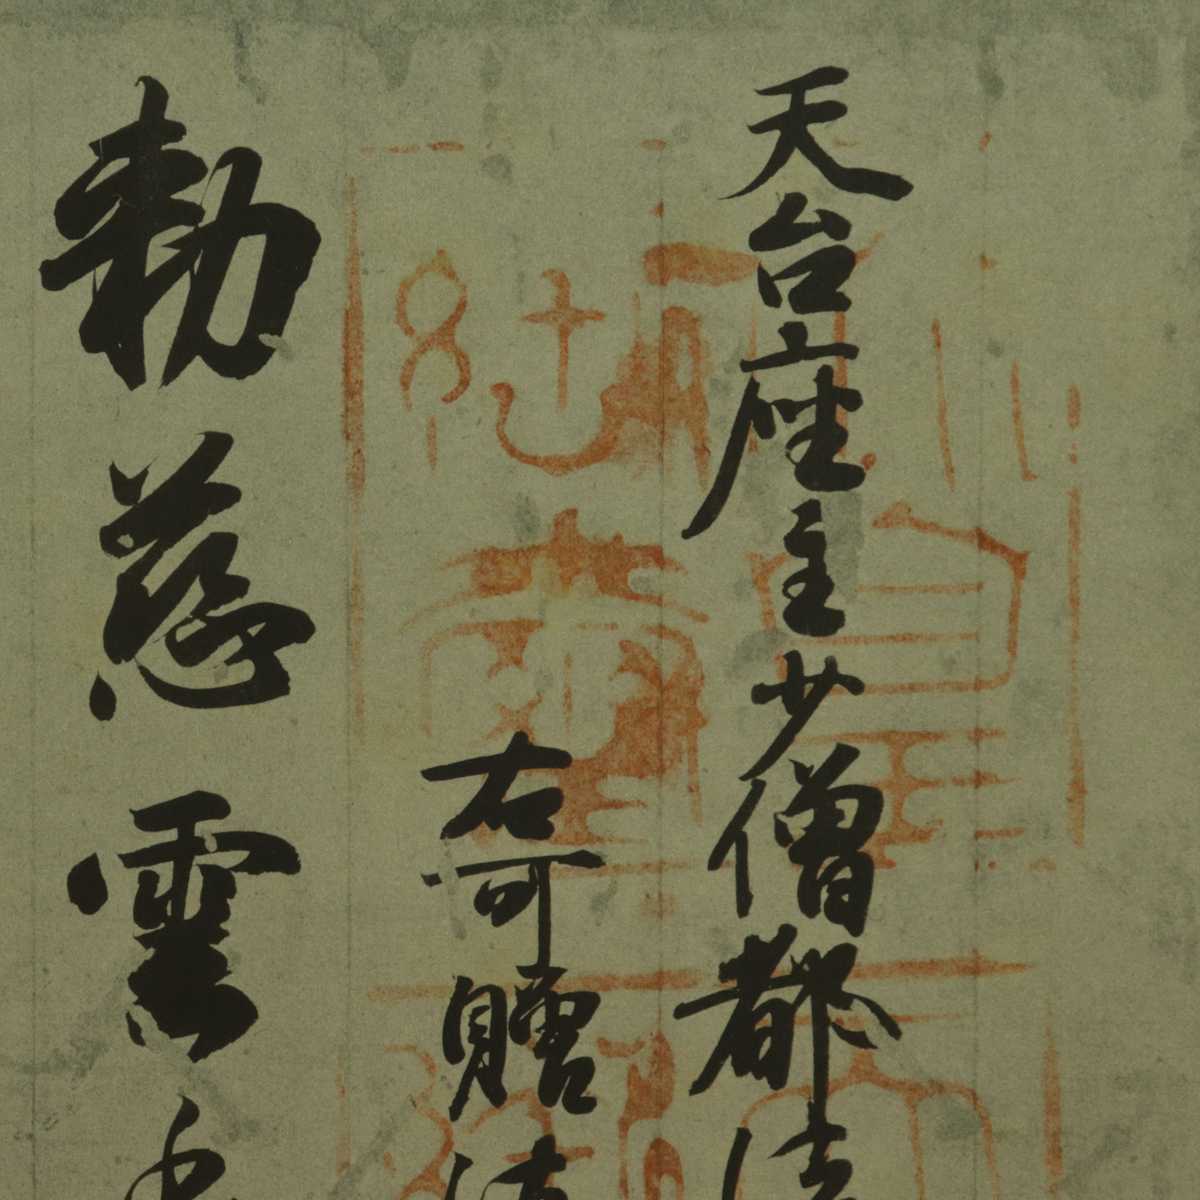 天台座主少僧都法
右可贈法
勅慈雲